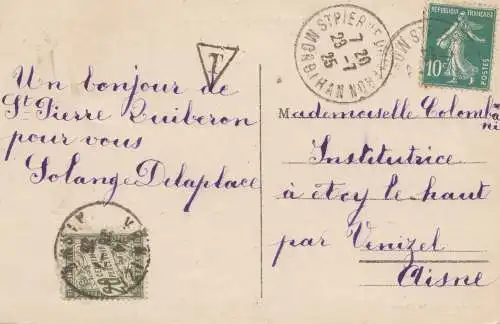 Un bonjour de
St Pierre Quiberon
pour vous
Solange Delaplace
T
ST PIERRE
7 20
23 -7
25
MORBIHAN
RÉPUBLIQUE FRANÇAISE
10c
POSTES
Mademoiselle Colomb
Institutrice
à
le haut
par Venizel
Aisne
20